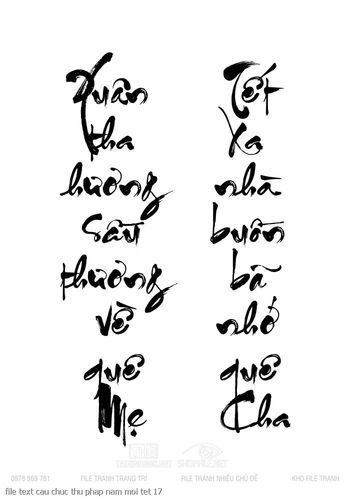 Xuân
tha
hương
sầu
thương
về
quê
Mẹ
Tết
xa
nhà
buồn
bã
nhớ
quê
Cha
SHOPFILE.NET
0978 989 761 FILE TRANH TRANG TRÍ FILE TRANH NHIỀU CHỦ ĐỀ KHO FILE TRANH
file text cau chuc thu phap nam moi tet 17